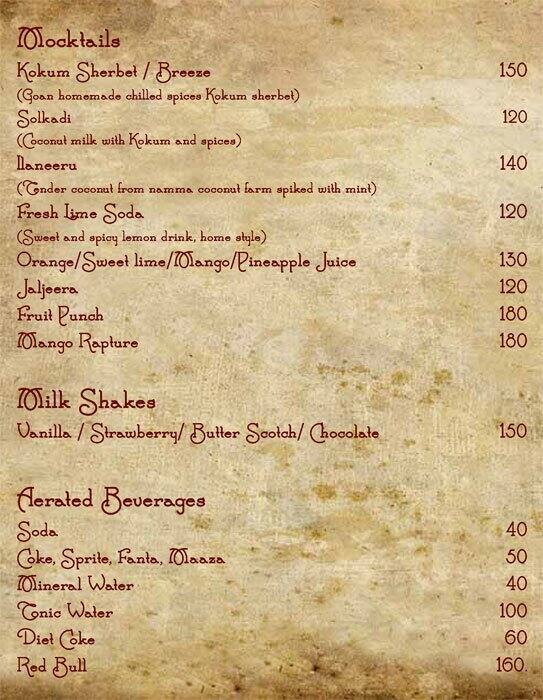 Mocktails
Kokum Sherbet / Breeze 150
(Goan homemade chilled spices Kokum sherbet)
Solkadi 120
(Coconut milk with Kokum and spices)
Ilaneeru 140
(Tender coconut from namma coconut farm spiked with mint)
Fresh Lime Soda 120
(Sweet and spicy lemon drink, home style)
Orange/Sweet lime/Mango/Pineapple Juice 130
Jaljeera 120
Fruit Punch 180
Mango Rapture 180
Milk Shakes
Vanilla / Strawberry/ Butter Scotch/ Chocolate 150
Aerated Beverages
Soda 40
Coke, Sprite, Fanta, Maaza 50
Mineral Water 40
Tonic Water 100
Diet Coke 60
Red Bull 160.